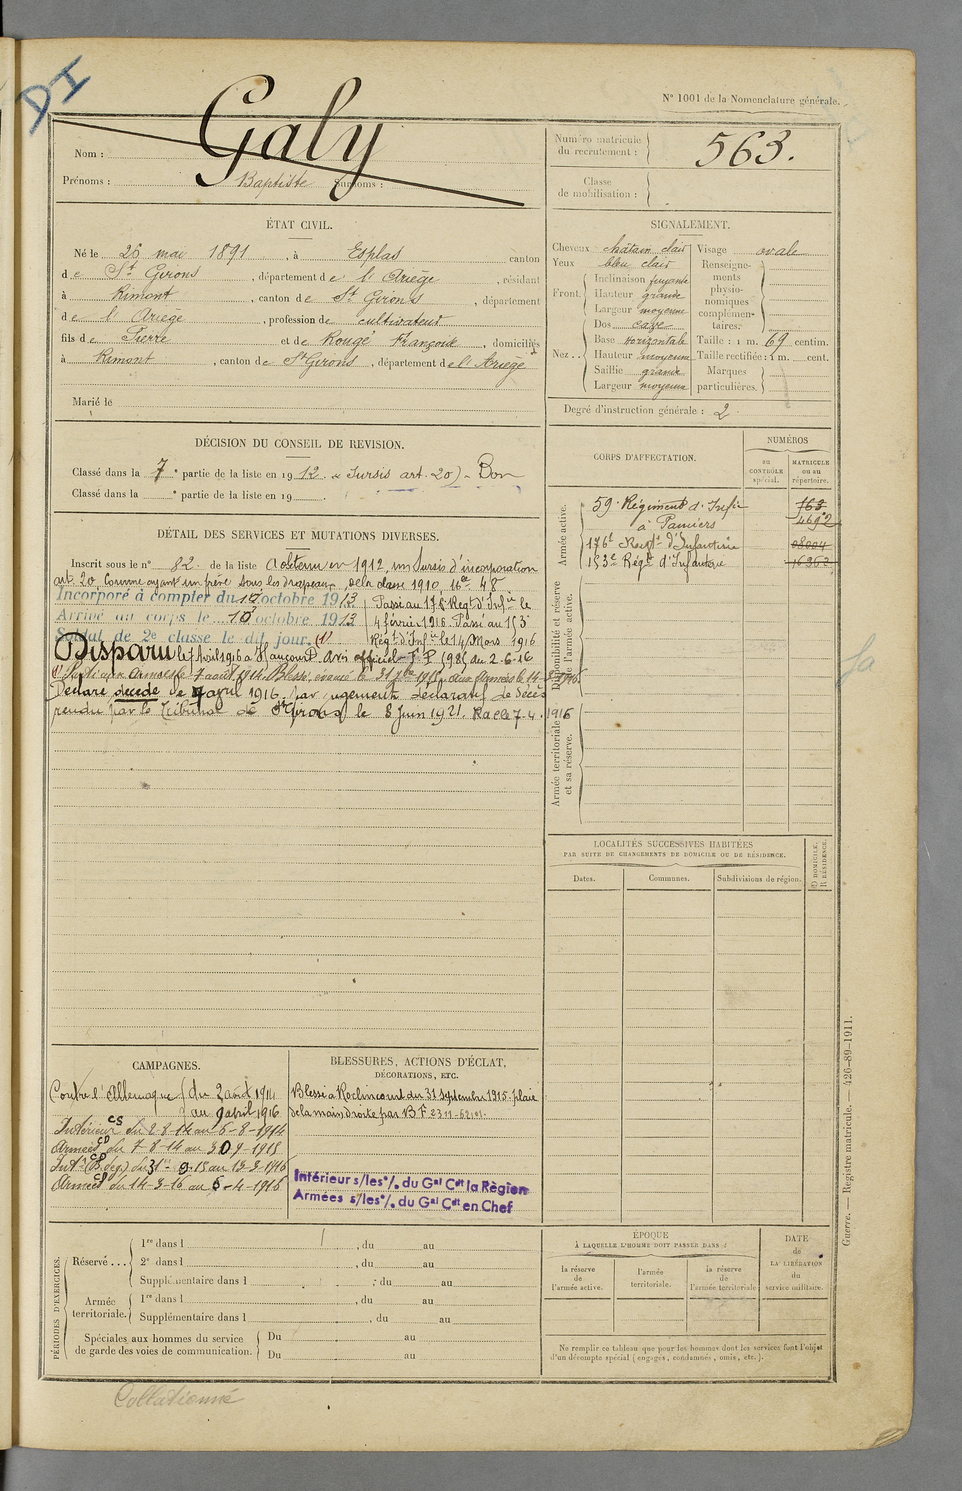 DI
N° 1001 de la Nomenclature générale.
Nom : Galy
Prénoms : Baptiste Surnoms :
Numéro matricule du recrutement : 563.
Classe de mobilisation :
ÉTAT CIVIL.
Né le 26 mai 1891, à Esplas canton
de St Girons, département de l'Ariège, résidant
à Rimont, canton de St Girons, département
de l'Ariège, profession de cultivateur
fils de Pierre et de Rougé Françoise, domiciliés
à Rimont, canton de St Girons, département de l'Ariège
Marié le
SIGNALEMENT.
Cheveux châtain clair
Yeux bleu clair
Front. Inclinaison fuyante
Hauteur grande
Largeur moyenne
Nez.. Dos cave
Base horizontale
Hauteur moyenne
Saillie grande
Largeur moyenne
Visage ovale
Renseignements physionomiques complémentaires.
Taille : 1 m. 69 centim.
Taille rectifiée : 1 m. cent.
Marques particulières.
Degré d'instruction générale : 2
DÉCISION DU CONSEIL DE REVISION.
Classé dans la 7e partie de la liste en 1912. (Sursis art. 20) - Bon
Classé dans la e partie de la liste en 19 .
CORPS D'AFFECTATION.
NUMÉROS
au CONTRÔLE spécial.
MATRICULE ou au répertoire.
Armée active.
59e Régiment d'Infie 763
à Pamiers 4692
176e Regt d'Infanterie 08004
153e Régt d'Infanterie 16363
Disponibilité et réserve de l'armée active.
Armée territoriale et sa réserve.
DÉTAIL DES SERVICES ET MUTATIONS DIVERSES.
Inscrit sous le n° 82 de la liste A obtenu en 1912 un Sursis d'incorporation
art. 20, comme ayant un frère sous les drapeaux, de la classe 1910
Incorporé à compter du 10 octobre 1913
Arrivé au corps le 10 octobre 1913
Soldat de 2e classe le dit jour. (1)
Passé au 176e Regt d'Infie le
4 février 1916. Passé au 153e
Régt d'Infie le 14 Mars 1916
Disparu le 7 Avril 1916 à Haucourt. Avis officiel F. P. 598 du 2-6-16
(1) Parti aux armées le 7 août 1914. Blessé, évacué le 31 7bre 1915. Aux Armées le 14-3-1916
Déclaré décédé le 7 avril 1916 par jugement déclaratif de décès
rendu par le Tribunal de St Girons le 8 Juin 1921. Rad le 7.4.1916
LOCALITÉS SUCCESSIVES HABITÉES
PAR SUITE DE CHANGEMENTS DE DOMICILE OU DE RÉSIDENCE.
Dates.
Communes.
Subdivisions de région.
D DOMICILE.
R RÉSIDENCE.
CAMPAGNES.
Contre l'Allemagne du 2 août 1914
au 7 avril 1916
Intérieur CS du 2-8-14 au 6-8-1914
Armées CD du 7-8-14 au 30-9-1915
Int. du 31-9-15 au 13-3-1916
Armées CD du 14-3-16 au 6-4-1916
BLESSURES, ACTIONS D'ÉCLAT,
DÉCORATIONS, ETC.
Blessé à Roclincourt du 31 septembre 1915. plaie
de la main droite par B.
Intérieur s/les o/. du Gal Cdt la Région
Armées s/les o/. du Gal Cdt en Chef
PÉRIODES D'EXERCICES.
Réserve...
1re dans l , du au
2e dans l , du au
Supplémentaire dans l , du au
Armée territoriale.
1re dans l , du au
Supplémentaire dans l , du au
Spéciales aux hommes du service de garde des voies de communication.
Du au
Du au
ÉPOQUE
À LAQUELLE L'HOMME DOIT PASSER DANS :
la réserve de l'armée active.
l'armée territoriale.
la réserve de l'armée territoriale
DATE de LA LIBÉRATION du service militaire.
Ne remplir ce tableau que pour les hommes dont les services font l'objet
d'un décompte spécial (engagés, condamnés, omis, etc.).
Guerre. — Registre matricule. — 426-89-1911.
Collationné